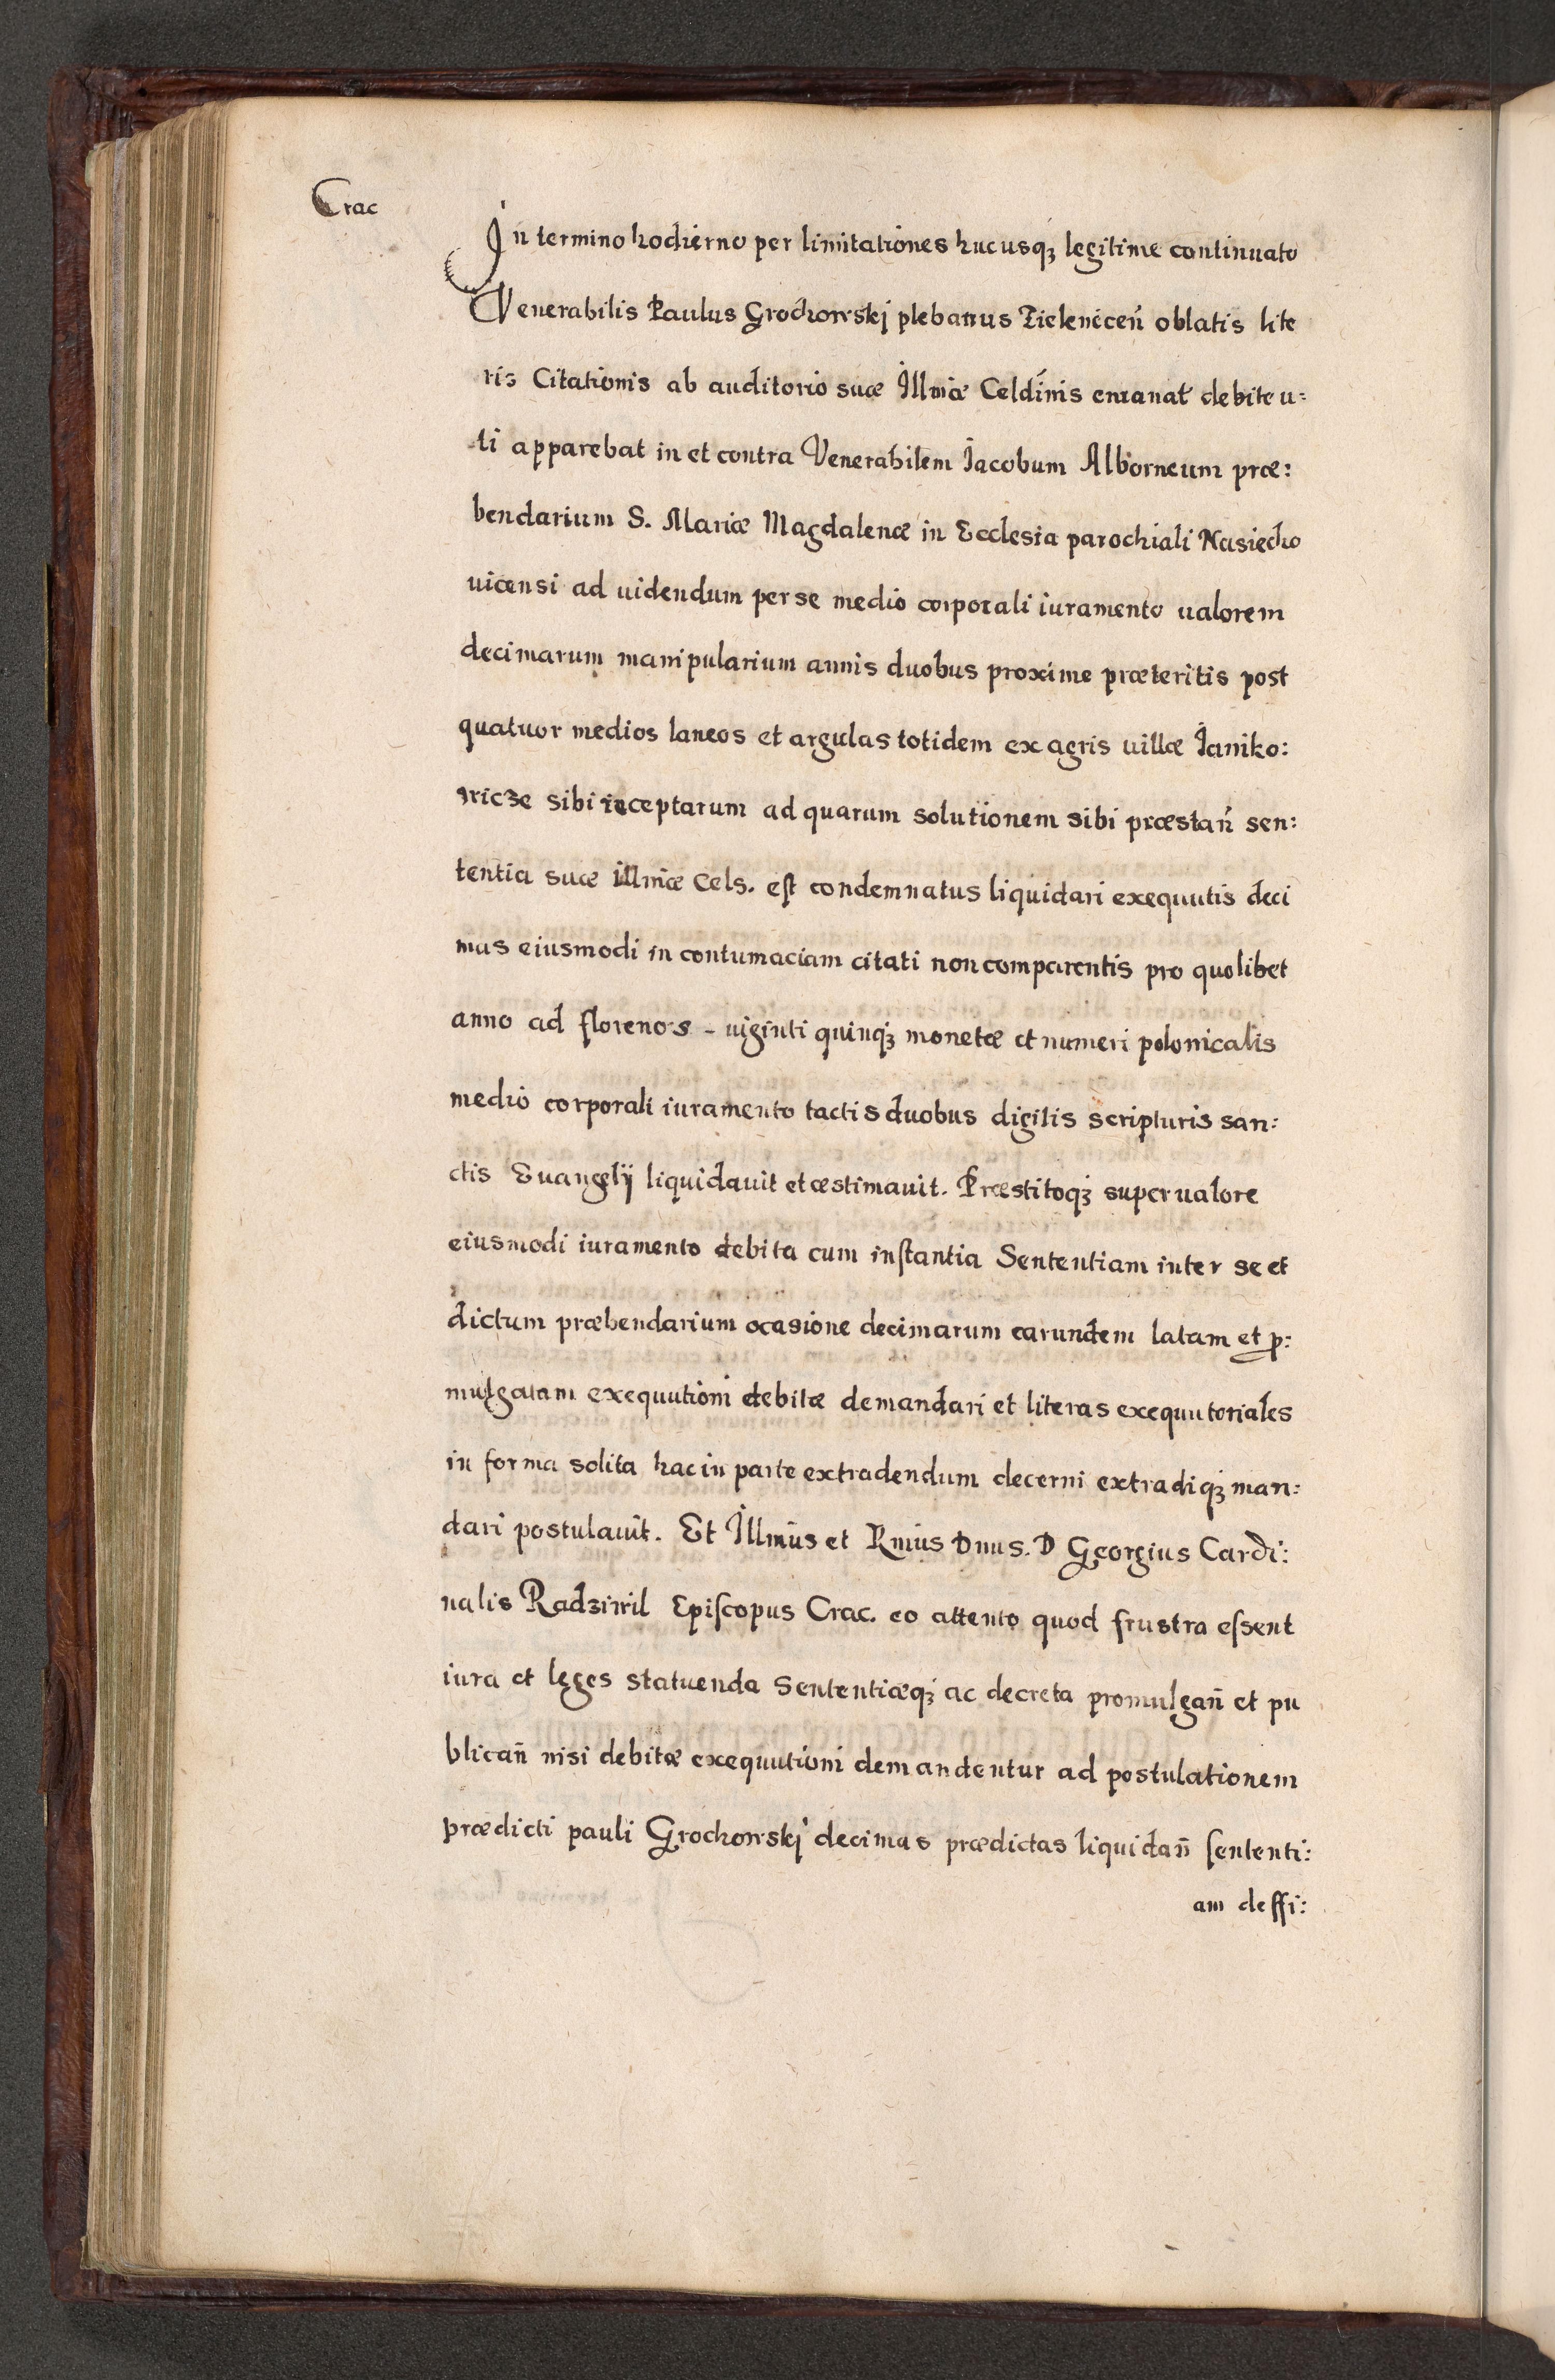 Crac
In termino hodierno per limitationes hucusqꝫ legitime continuato
Venerabilis Paulus Grochowskj plebanus Zielenicen̄ oblatis lite
ris Citationis ab auditorio suæ Illmæ Celdinis emanat debite u:
ti apparebat in et contra Venerabilem Iacobum Alborneum præ:
bendarium S. Mariæ Magdalenæ in Ecclesia parochiali Nasiecho
uicensi ad uidendum per se medio corporali iuramento ualorem
decimarum manipularium annis duobus proxime præteritis post
quatuor medios laneos et argulas totidem ex agris uillæ Ianiko:
wicze sibi receptarum ad quarum solutionem sibi præstan̄ sen:
tentia suæ illmæ Cels. est condemnatus liquidari exequutis deci
mas eiusmodi in contumaciam citati non comparentis pro quolibet
anno ad florenos - uiginti quinqꝫ monetæ et numeri polonicalis
medio corporali iuramento tactis duobus digitis scripturis san:
ctis Euangelij liquidauit et æstimauit. Præstitoqꝫ super ualore
eiusmodi iuramento debita cum instantia Sententiam inter se et
dictum præbendarium ocasione decimarum earundem latam et ꝓ:
mulgatam exequutioni debitæ demandari et literas exequutoriales
in forma solita hac in parte extradendum decerni extradiqꝫ man:
dari postulauit. Et Illmus et Rmus Dnus. D Georgius Cardi:
nalis Radziwil Episcopus Crac. eo attento quod frustra essent
iura et leges statuenda Sententiæqꝫ ac decreta promulgan̄ et pu
blican̄ nisi debitæ exequutioni demandentur ad postulationem
prædicti pauli Grochowskj decimas prædictas liquidan̄ sententi:
am deffi: